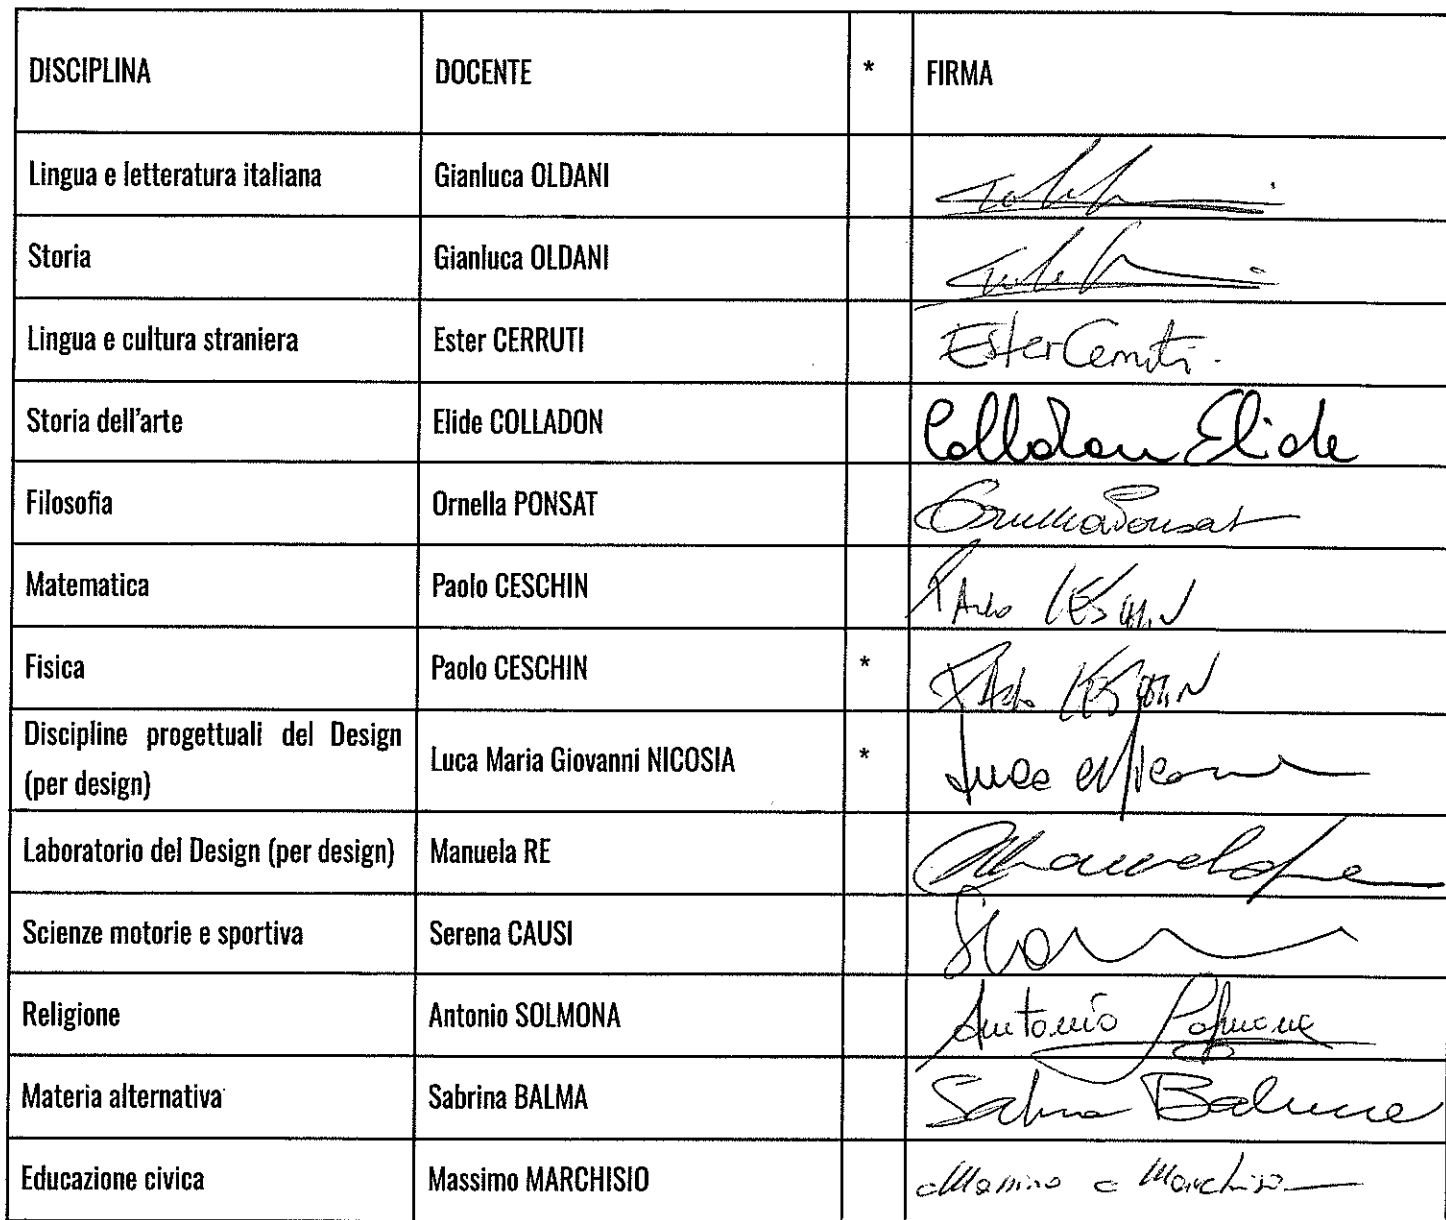 DISCIPLINA DOCENTE * FIRMA
Lingua e letteratura italiana Gianluca OLDANI
Storia Gianluca OLDANI
Lingua e cultura straniera Ester CERRUTI Ester Cerruti.
Storia dell'arte Elide COLLADON Colladon Elide
Filosofia Ornella PONSAT Ornella Ponsat
Matematica Paolo CESCHIN Paolo CESCHIN
Fisica Paolo CESCHIN * Paolo CESCHIN
Discipline progettuali del Design
(per design) Luca Maria Giovanni NICOSIA * Luca
Laboratorio del Design (per design) Manuela RE Manuela Re
Scienze motorie e sportiva Serena CAUSI
Religione Antonio SOLMONA Antonio Solmona
Materia alternativa Sabrina BALMA Sabrina Balma
Educazione civica Massimo MARCHISIO Massimo Marchisio